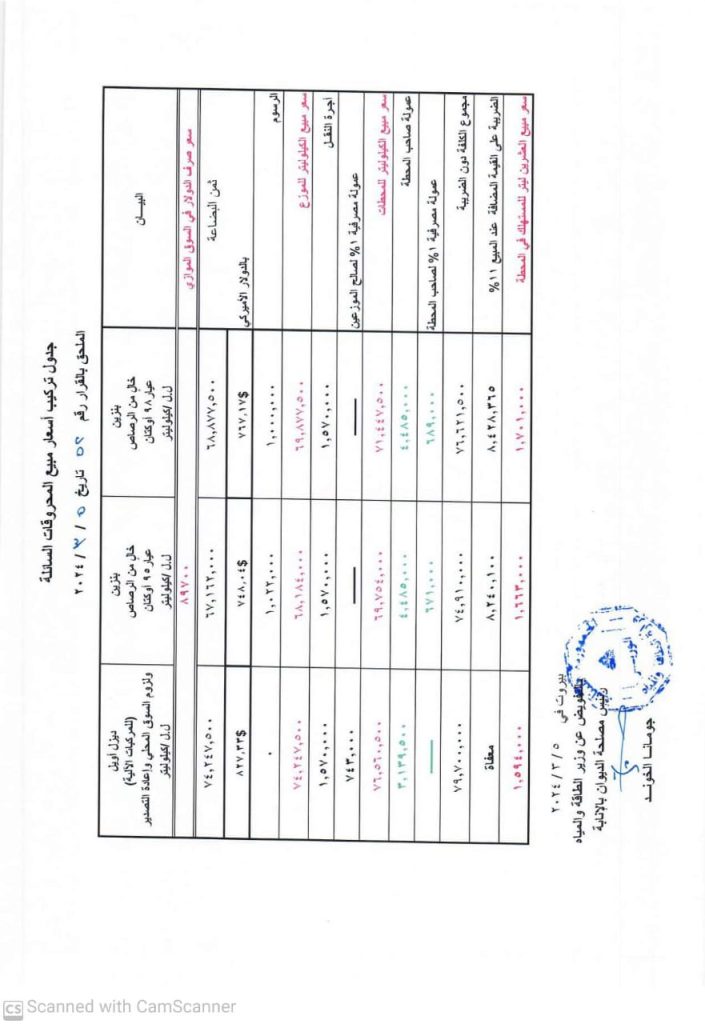 جدول تركيب أسعار مبيع المحروقات السائلة
الملحق بالقرار رقم ٥٢ تاريخ ٥ / ٣ / ٢٠٢٤
البيـــان
بنزين
عيار ٩٨ أوكتان
خالٍ من الرصاص
ل.ل/كيلوليتر
بنزين
عيار ٩٥ أوكتان
خالٍ من الرصاص
ل.ل/كيلوليتر
ديزل أويل
(للمركبات الآلية)
ولزوم السوق المحلي وإعادة التصدير
ل.ل/كيلوليتر
سعر صرف الدولار في السوق الموازي ٨٩٧٠٠
ثمن البضاعة ٦٨,٨٧٧,٥٠٠ ٦٧,١٦٢,٠٠٠ ٧٤,٢٤٧,٥٠٠
بالدولار الأميركي ٧٦٧,١٧$ ٧٤٨,٠٤$ ٨٢٧,٣٣$
الرسوم ١,٠٠٠,٠٠٠ ١,٠٢٢,٠٠٠ ٠
سعر مبيع الكيلوليتر للموزع ٦٩,٨٧٧,٥٠٠ ٦٨,١٨٤,٠٠٠ ٧٤,٢٤٧,٥٠٠
أجرة النقل ١,٥٧٠,٠٠٠ ١,٥٧٠,٠٠٠ ١,٥٧٠,٠٠٠
عمولة مصرفية ١% لصالح الموزعين — — ٧٤٣,٠٠٠
سعر مبيع الكيلوليتر للمحطات ٧١,٤٤٧,٥٠٠ ٦٩,٧٥٤,٠٠٠ ٧٦,٥٦٠,٥٠٠
عمولة صاحب المحطة ٤,٤٨٥,٠٠٠ ٤,٤٨٥,٠٠٠ ٣,١٣٩,٥٠٠
عمولة مصرفية ١% لصاحب المحطة ٦٨٩,٠٠٠ ٦٧١,٠٠٠ —
مجموع الكلفة دون الضريبة ٧٦,٦٢١,٥٠٠ ٧٤,٩١٠,٠٠٠ ٧٩,٧٠٠,٠٠٠
الضريبة على القيمة المضافة عند المبيع ١١% ٨,٤٢٨,٣٦٥ ٨,٢٤٠,١٠٠ معفاة
سعر مبيع العشرين ليتر للمستهلك في المحطة ١,٧٠١,٠٠٠ ١,٦٦٣,٠٠٠ ١,٥٩٤,٠٠٠
بيروت في ٢٠٢٤ / ٣ / ٥
بالتفويض عن وزير الطاقة والمياه
رئيس مصلحة الديوان بالإنابة
جومانا الخونـــد
CS Scanned with CamScanner